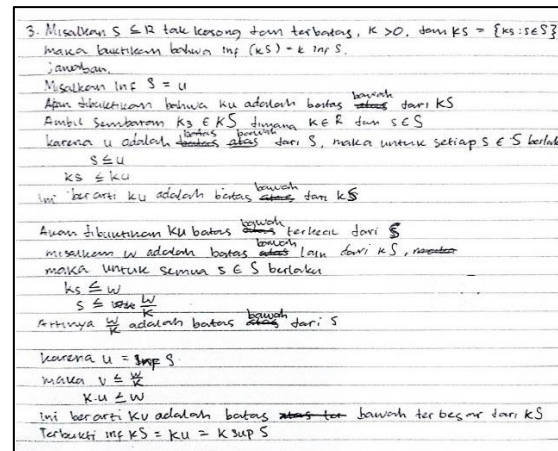 3. Misalkan S ⊆ R tak kosong dan terbatas, K > 0, dan KS = {ks : s∈S}
maka buktikan bahwa inf (KS) = k inf S.
jawaban.
Misalkan inf S = u
Akan dibuktikan bahwa ku adalah batas bawah dari KS
Ambil sembarang ks ∈ KS dimana K∈R dan s∈S
karena u adalah batas bawah dari S, maka untuk setiap s ∈ S berlaku
s ≤ u
ks ≤ ku
ini berarti ku adalah batas bawah dari KS
Akan dibuktikan ku batas bawah terkecil dari S
misalkan w adalah batas bawah lain dari KS,
maka untuk semua s ∈ S berlaku
ks ≤ w
s ≤ w/k
Artinya w/k adalah batas bawah dari S
karena u = inf S
maka u ≤ w/k
k.u ≤ w
ini berarti ku adalah batas bawah terbesar dari KS
Terbukti inf KS = ku = k sup S